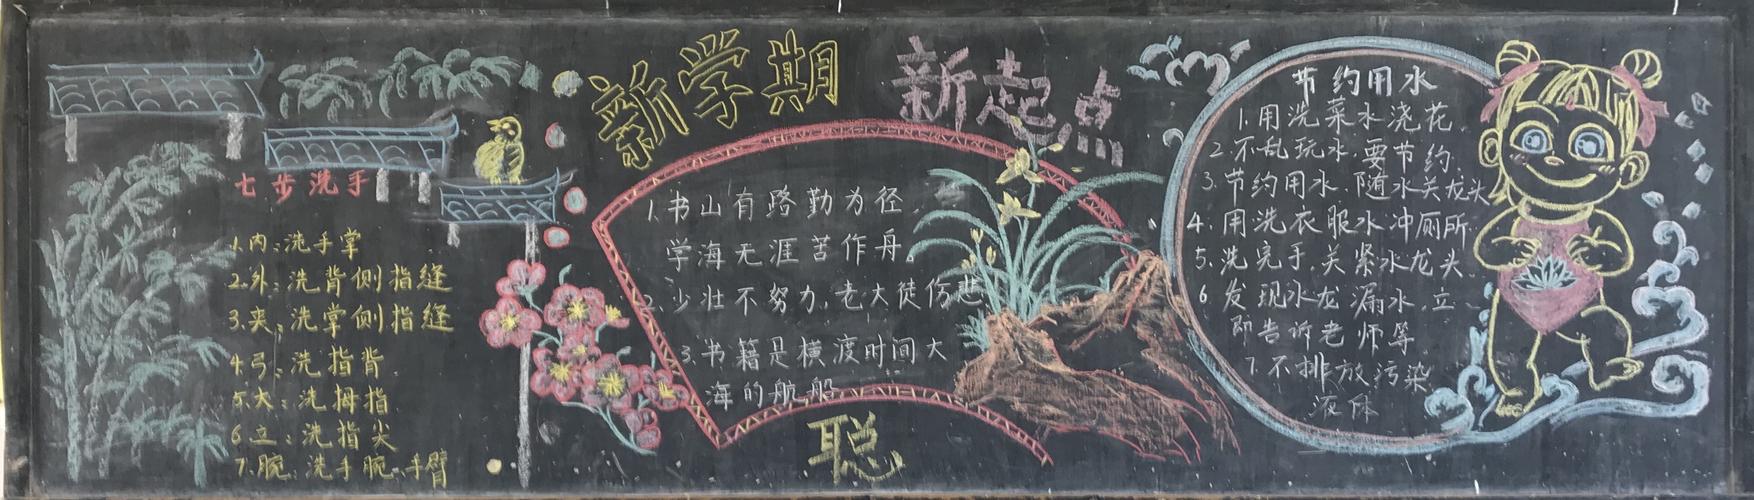 新学期 新起点
七步洗手
1.内:洗手掌
2.外:洗背侧指缝
3.夹:洗掌侧指缝
4.弓:洗指背
5.大:洗拇指
6.立:洗指尖
7.腕:洗手腕、手臂
1.书山有路勤为径,
学海无涯苦作舟。
2.少壮不努力,老大徒伤悲
3.书籍是横渡时间大
海的航船
聪
节约用水
1.用洗菜水浇花
2.不乱玩水,要节约.
3.节约用水,随水关龙头
4.用洗衣服水冲厕所
5.洗完手,关紧水龙头
6.发现水龙漏水,立
即告诉老师等
7.不排放污染
液体